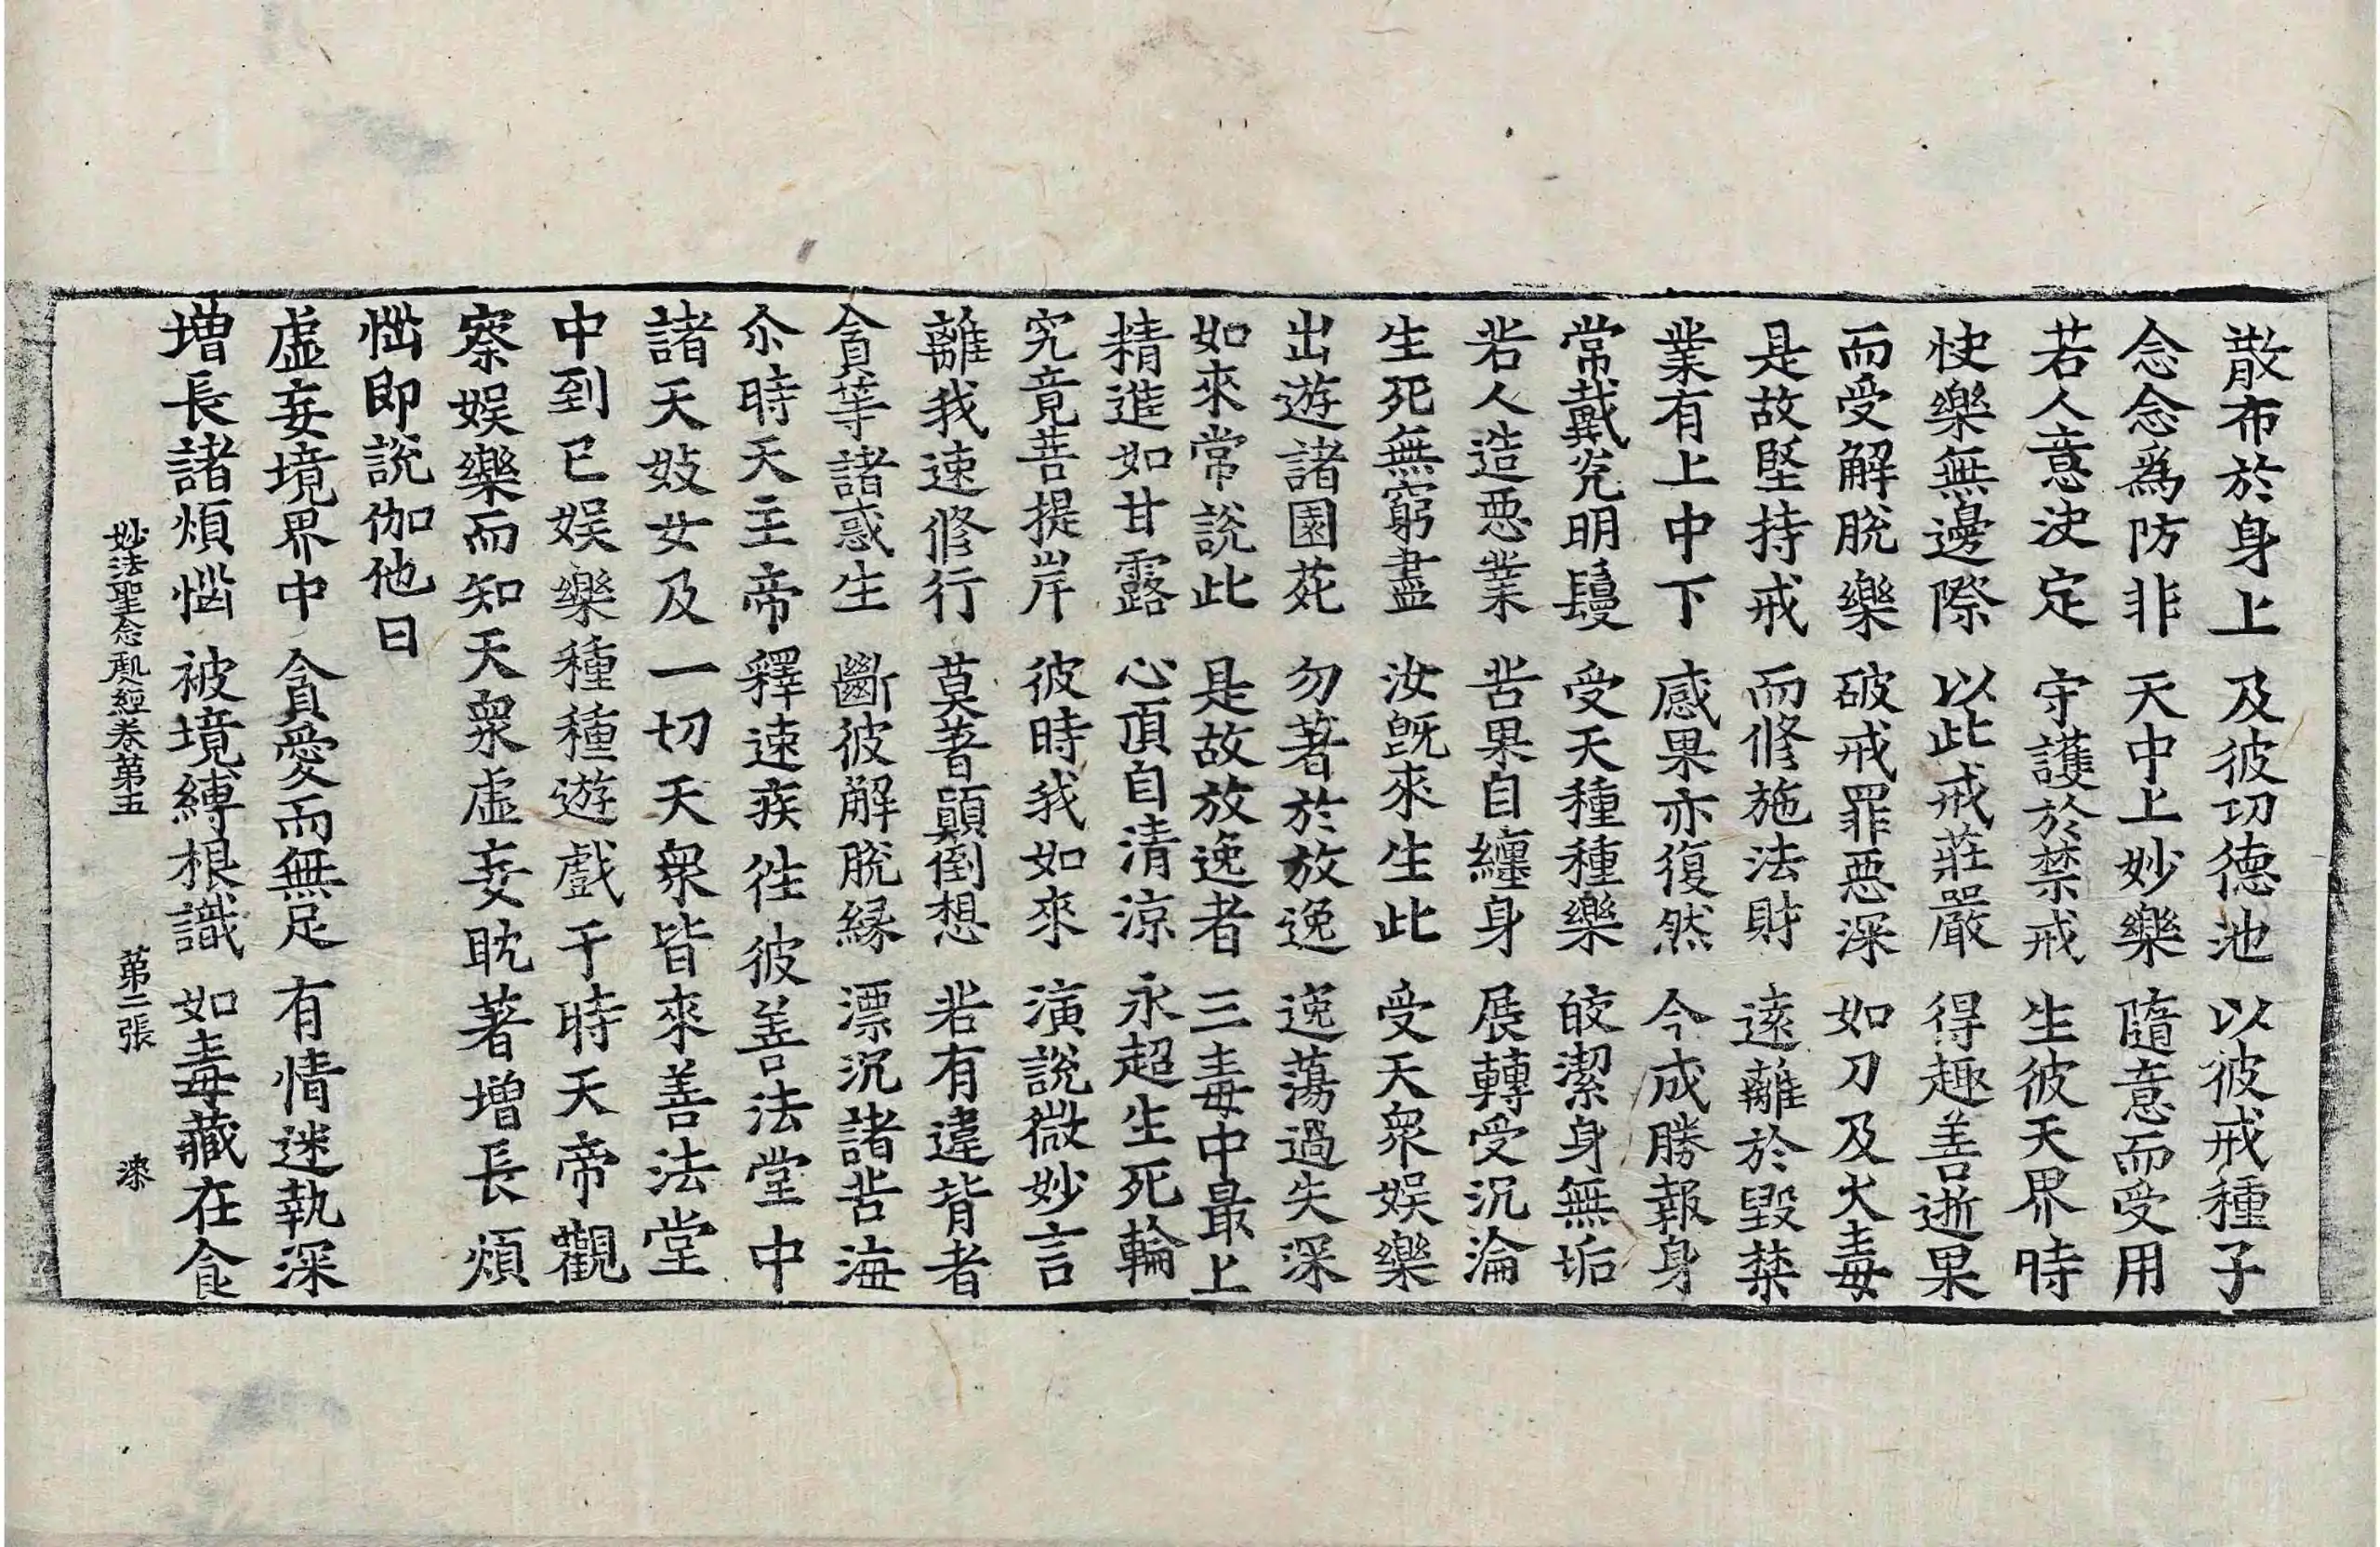 散布於身上 及彼功德池 以彼戒種子
念念爲防非 天中上妙樂 隨意而受用
若人意决定 守護於禁戒 生彼天界時
快樂無邊際 以此戒莊嚴 得趣善逝果
而受解脫樂 破戒罪惡深 如刀及火毒
是故堅持戒 而修施法財 遠離於毀禁
業有上中下 感果亦復然 今成勝報身
常戴光明鬘 受天種種樂 皎潔身無垢
若人造惡業 苦果自纏身 展轉受沉淪
生死無窮盡 汝旣來生此 受天衆娱樂
出遊諸園苑 勿著於放逸 逸蕩過失深
如來常說此 是故放逸者 三毒中最上
精進如甘露 心頂自清涼 永超生死輪
究竟菩提岸 彼時我如來 演說微妙言
離我速修行 莫著顚倒想 若有違背者
貪等諸惑生 斷彼解脫緣 漂沉諸苦海
尒時天主帝釋速疾徃彼善法堂中
諸天妓女及一切天衆皆來善法堂
中到已娱樂種種遊戲于時天帝觀
察娱樂而知天衆虛妄耽著增長煩
惱即說伽他曰
虛妄境界中 貪愛而無足 有情迷執深
增長諸煩惱 被境縛根識 如毒藏在食
妙法聖念處經卷第五 第二張 漆